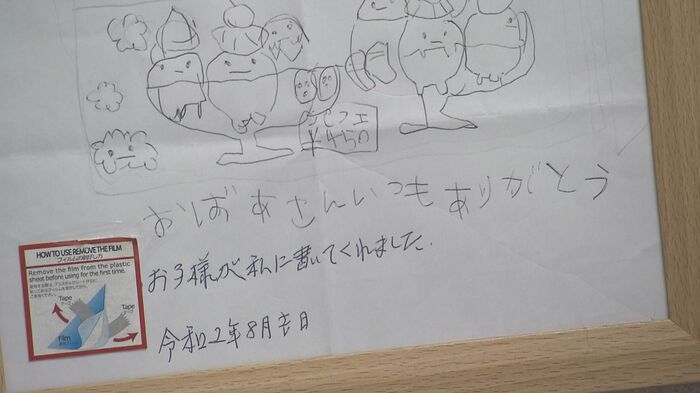 パフェ
¥450
おばあさんいつもありがとう
お子様が私に書いてくれました.
令和2年8月吉日
HOW TO USE REMOVE THE FILM
フィルムの剥がし方
Remove the film from the plastic
sheet before using for the first time.
Tape
テープ
Tape
テープ
Film